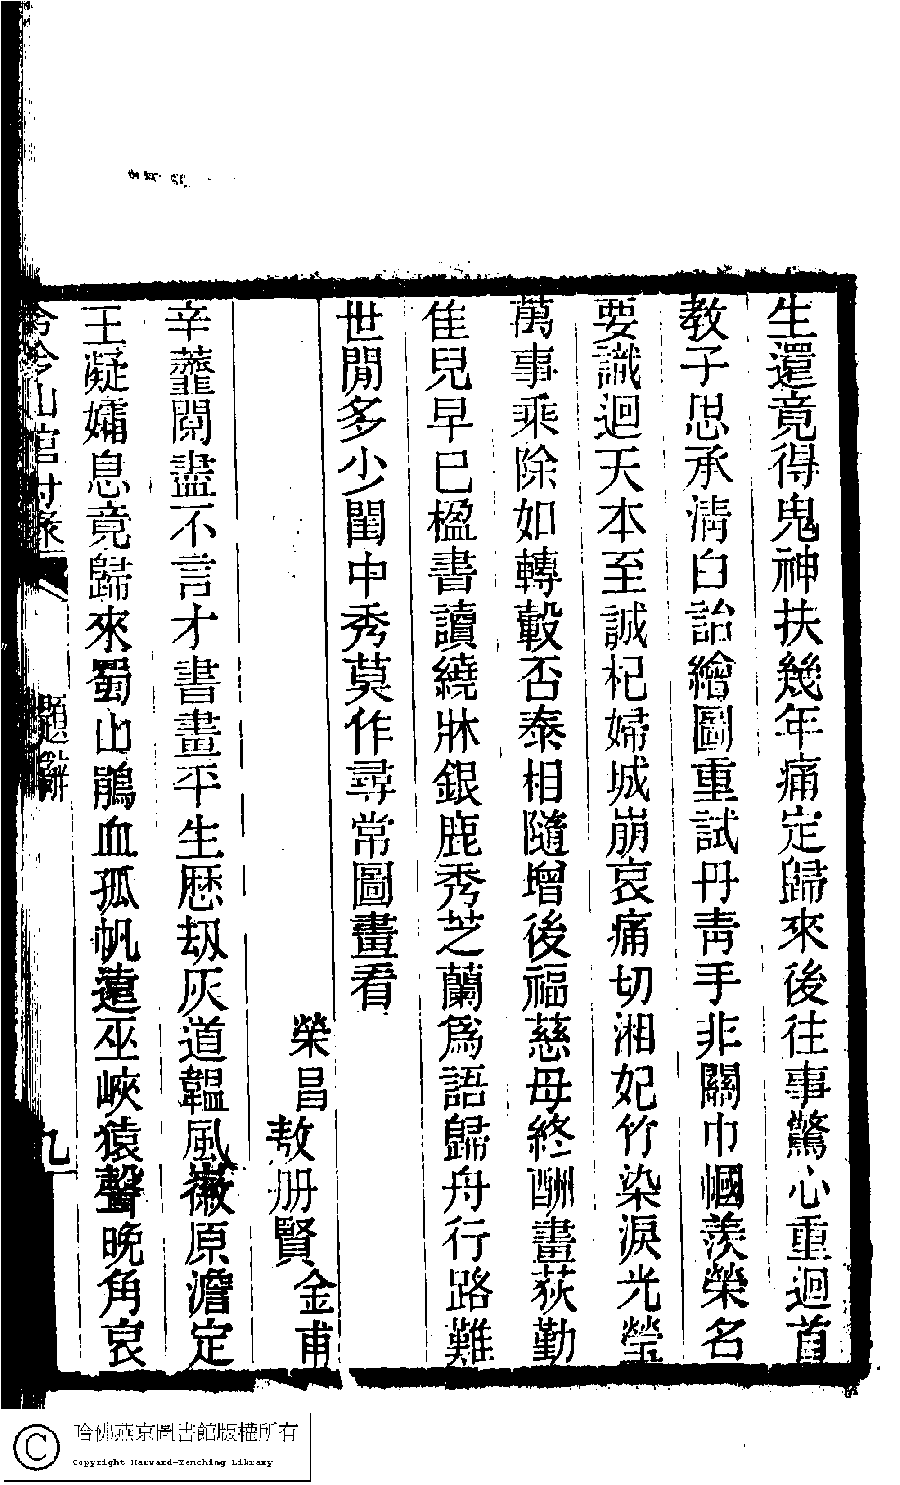 生還竟得鬼神扶幾年痛定歸來後往事驚心重迴首
教子思承淸白詒繪圖重試丹靑手非關巾幗羨榮名
要識迴天本至誠杞婦城崩哀痛切湘妃竹染淚光瑩
萬事乘除如轉轂否泰相隨增後福慈母終酬畫荻勤
佳兒早已楹書讀繞牀銀鹿秀芝蘭爲語歸舟行路難
世閒多少閨中秀莫作尋常圖畫看
榮昌敖册賢金甫
辛虀閱盡不言才書畫平生歷刼灰道韞風徽原澹定
王凝孀息竟歸來蜀山鵑血孤帆遠巫峽猿聲晚角哀
泠泠山館
題辭
九
哈佛燕京圖書館版權所有
Copyright Harvard-Yenching Library